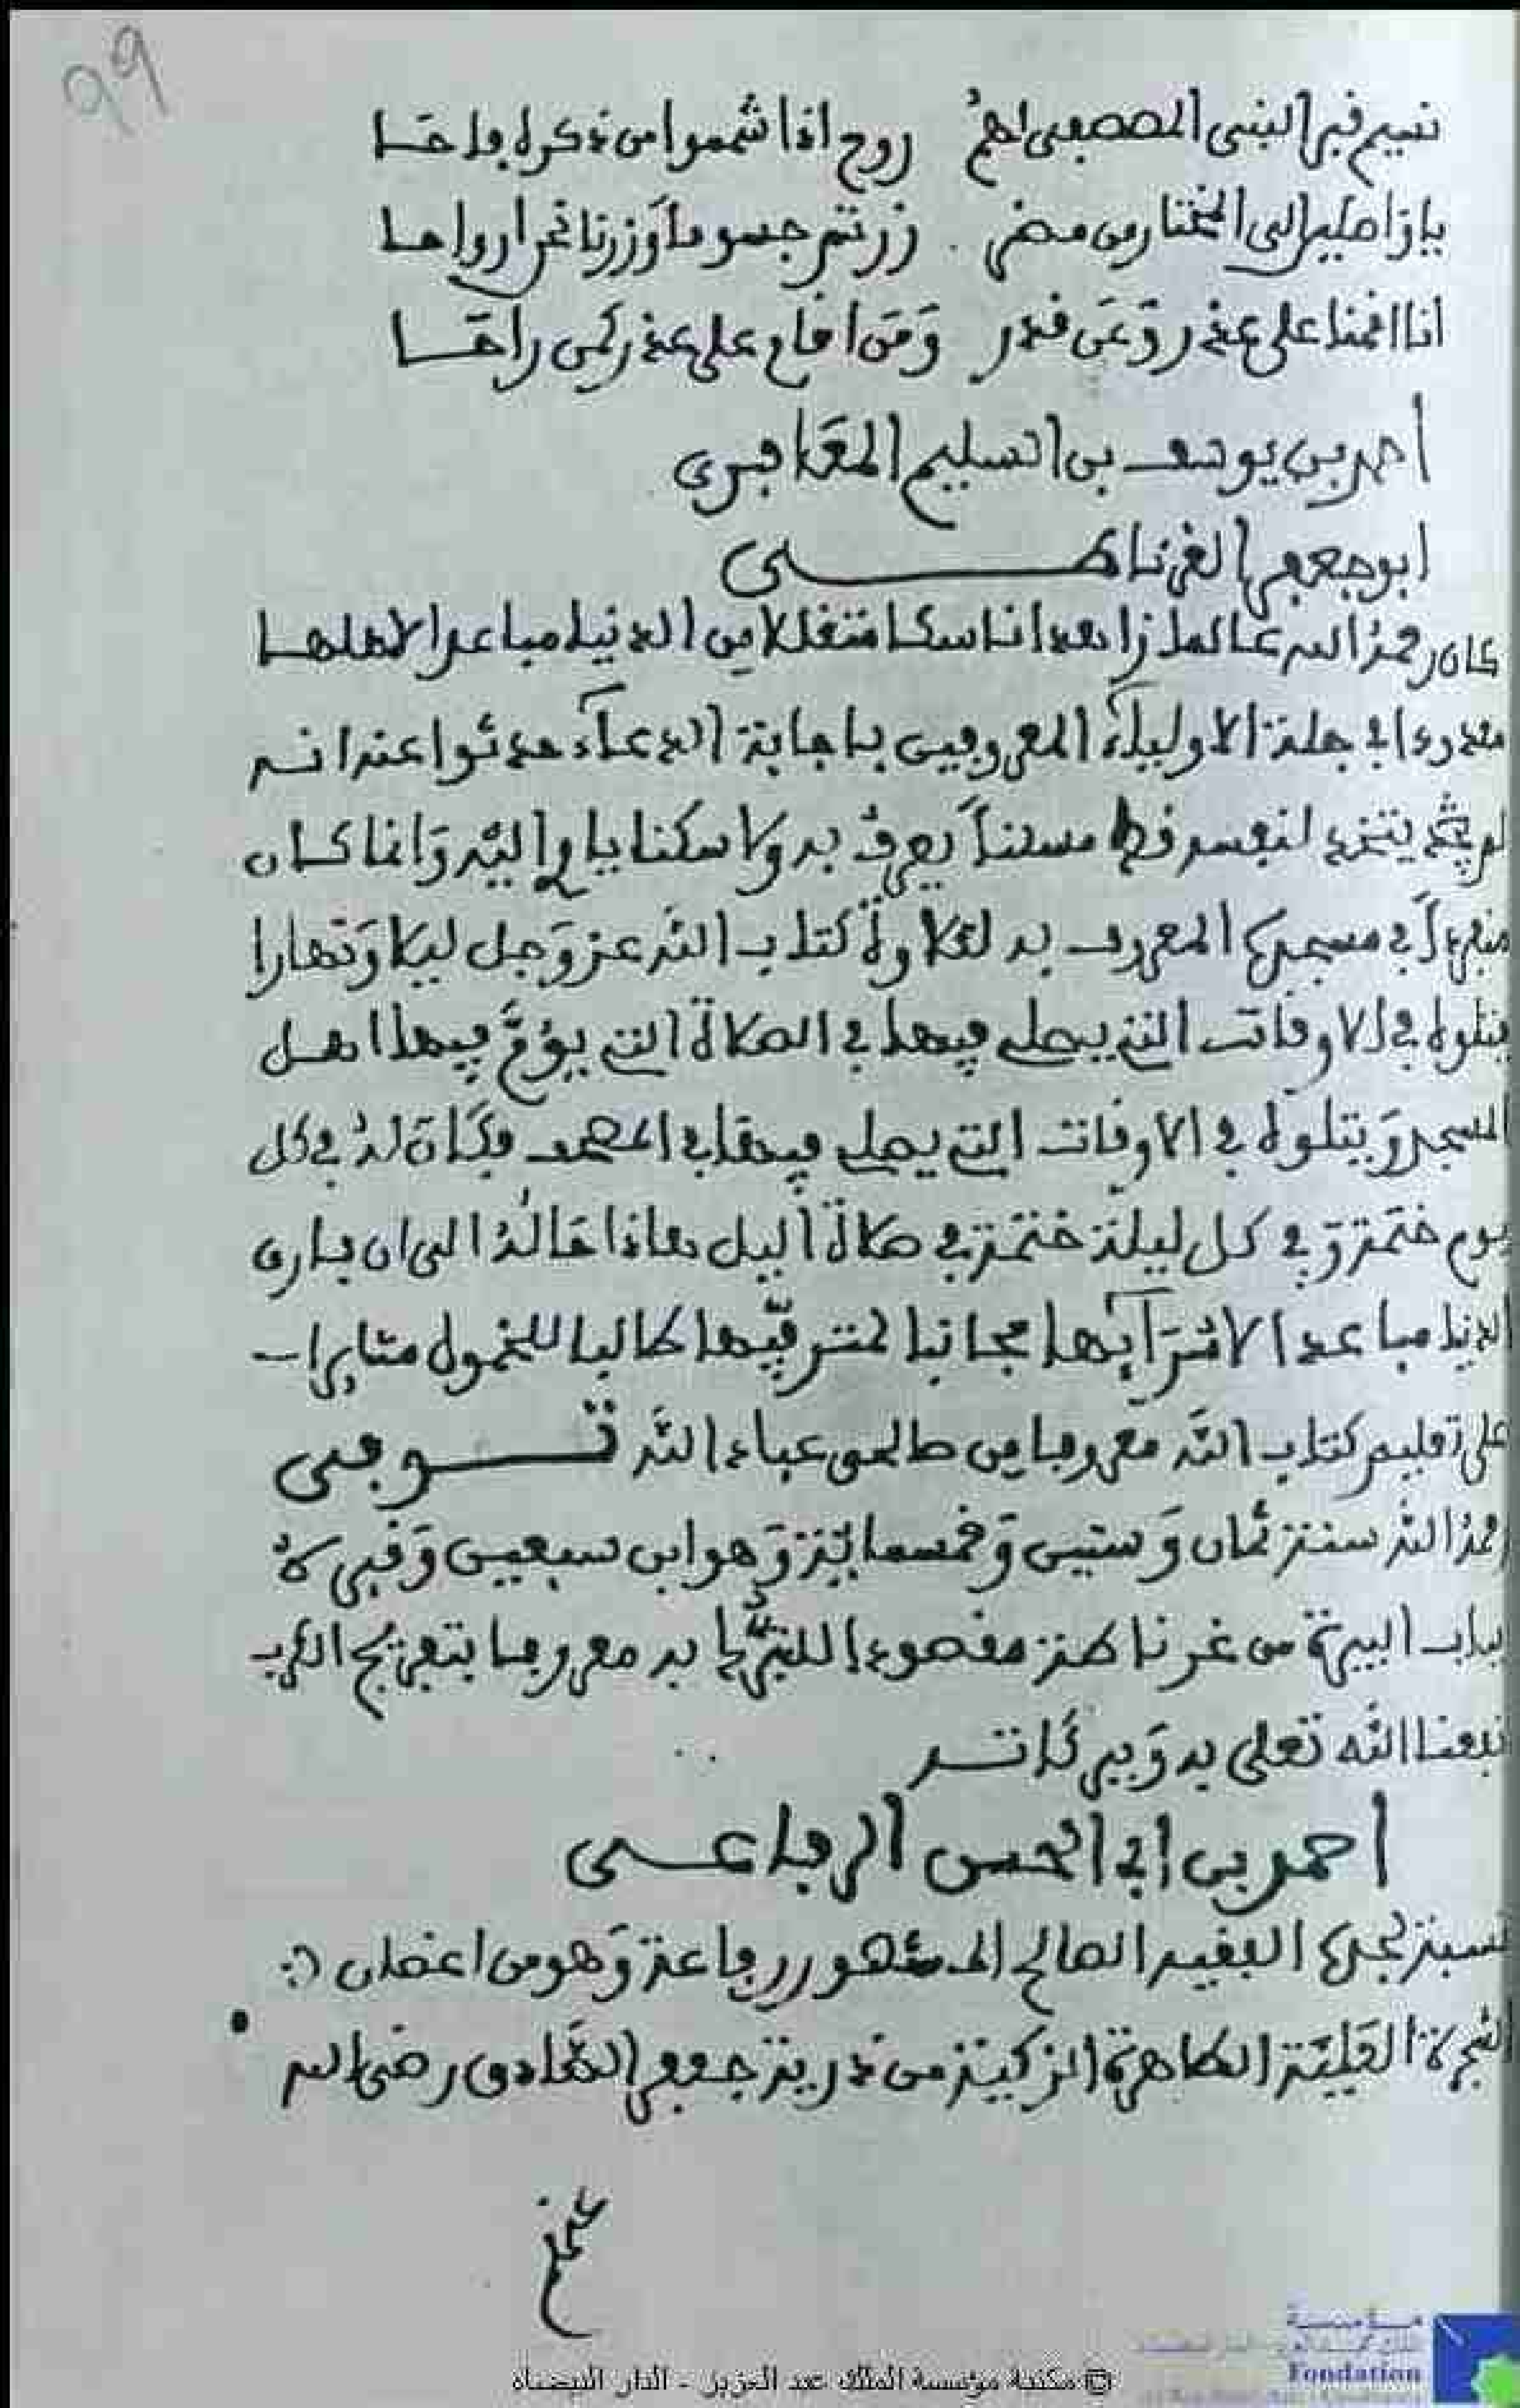 99
نسيم قبر النبي المصطفى لهمُ روح اذا شموا من ذكراه فاحا
يا راحلين الى المختار من مضر زرتم جسوما وزرنا نحن ارواحا
انا اقمنا على عذر وَعَن قدر وَمَن اقام على عذر كمن راحا
أحمد بن يوسف بن السليم المعَافري
ابو جعفر الغرناطي
كان رحمهُ الله عالما زاهدا ناسكا متقللا من الدنيا مباعدا لاهلها
معدودا في جملة الاولياء المعروفين باجابة الدعآء حدثوا عنه انه
لم يتخذ لنفسه قط مسكناً يعرف به ولا سكنا ياوي اليه وَانما كان
منفرداً في مسجده المعروف به لتلاوة كتاب الله عز وَجل ليلا وَنهارا
يتلوه في الاوقات التي يصلى فيها في الصلاة التي يؤمّ فيها اهل
المسجد وَيتلوه في الاوقات التي يصلي فيها في المصحف فكَان لهُ في كل
يوم ختمَة وَفي كل ليلة ختمَة في صلاة الليل هاذا حَالهُ الى ان فارق
الدنيا مباعدا لاثرآئها مجانبا لمترفيّها طالبا للخمول مثابرا
على تعليم كتاب الله معروفا من صالحي عباد الله توفى
رحمهُ الله سنة ثمان وَستين وَخمسمائة وَهو ابن سبعين وَقبره
بباب البيرة من غرناطة مقصودا للتبرّك به معروفا بتفريج الكرب
نفعنا الله تعلى به وَببركَاته
احمد بن ابي الحسن الرفاعي
نسبة لجده الفقيه الصالح المشهور رفاعة وَهو من اغصان
الشجرة العَليَّة الطاهرة الزكية من ذرية جعفر الصَّادق رضي الله
عنهم
© مكتبة مؤسسة الملك عبد العزيز - الدار البيضاء
Fondation